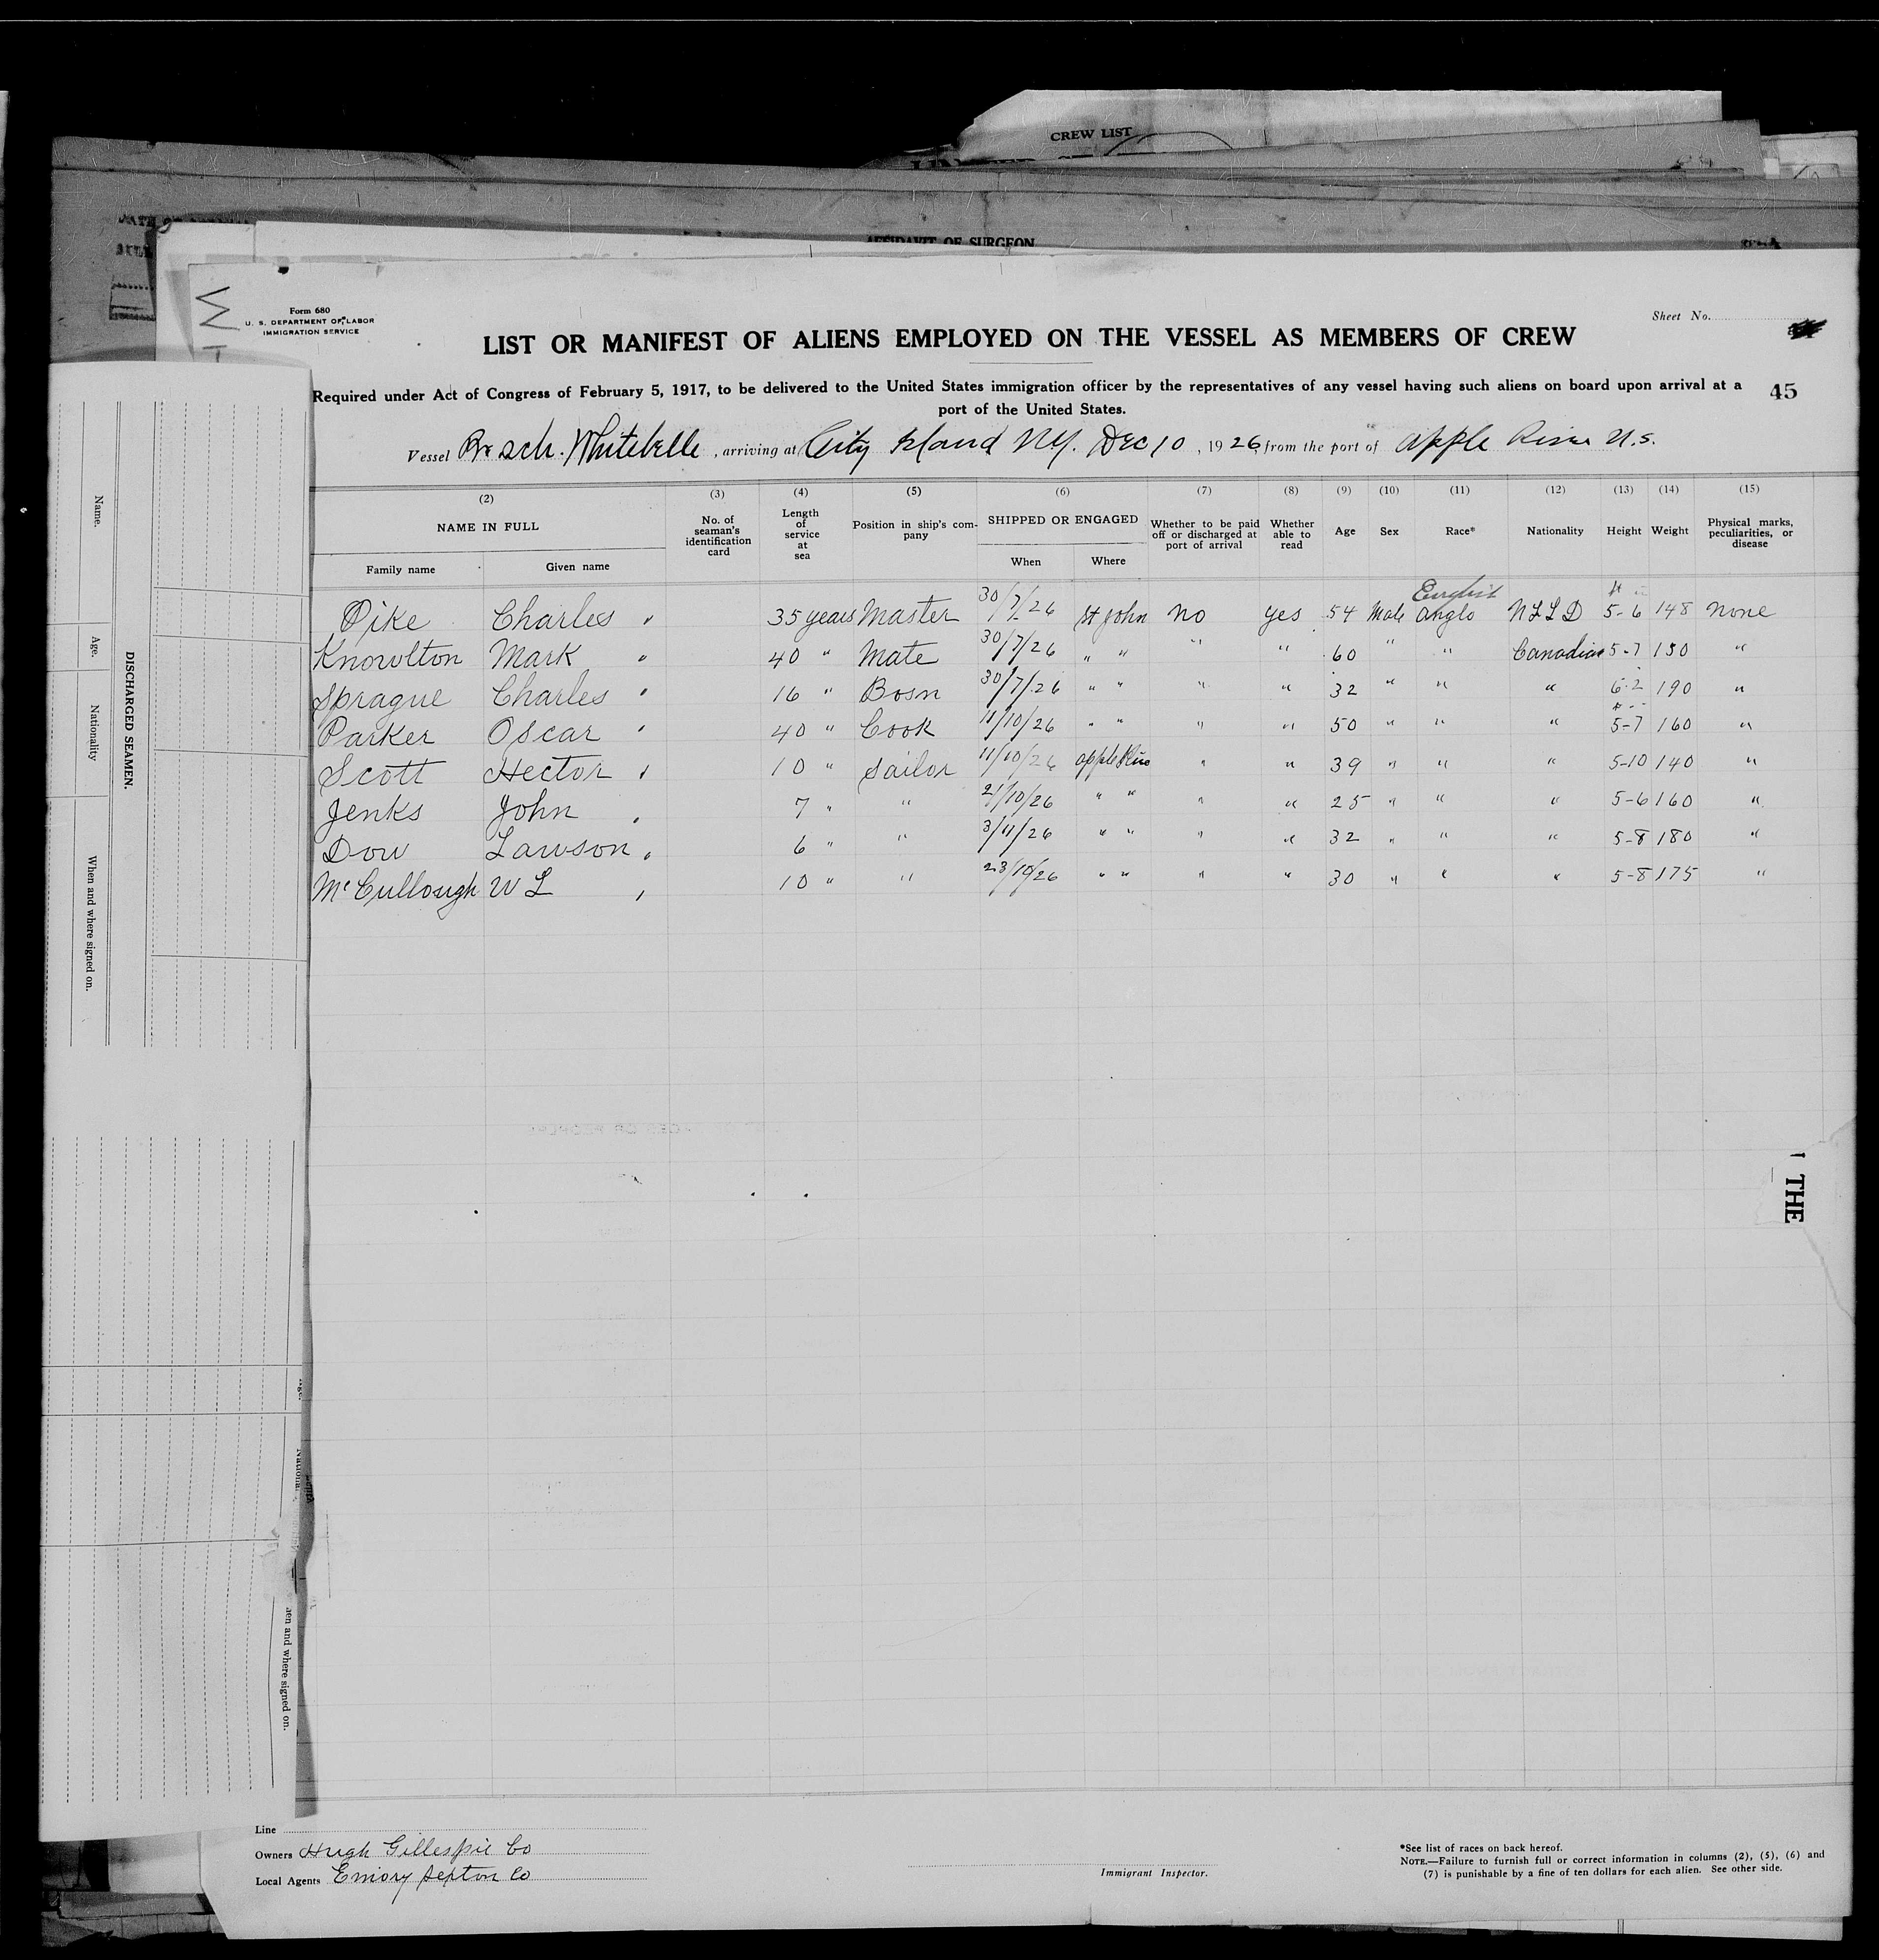 CREW LIST
AFFIDAVIT OF SURGEON
Form 680
U. S. DEPARTMENT OF LABOR
IMMIGRATION SERVICE
Sheet No.
LIST OR MANIFEST OF ALIENS EMPLOYED ON THE VESSEL AS MEMBERS OF CREW
Required under Act of Congress of February 5, 1917, to be delivered to the United States immigration officer by the representatives of any vessel having such aliens on board upon arrival at a
port of the United States.
45
Vessel Br sch. Whitebelle, arriving at City Island NY. Dec 10, 1926, from the port of Apple River N.S.
(2) (3) (4) (5) (6) (7) (8) (9) (10) (11) (12) (13) (14) (15)
NAME IN FULL
Family name Given name
No. of seaman's identification card
Length of service at sea
Position in ship's company
SHIPPED OR ENGAGED
When Where
Whether to be paid off or discharged at port of arrival
Whether able to read
Age
Sex
Race*
Nationality
Height
Weight
Physical marks, peculiarities, or disease
English
Pike Charles " 35 years Master 30/7/26 St John no yes 54 Male Anglo NFLD 5-6 148 none
Knowlton Mark " 40 " Mate 30/7/26 " " " " 60 " " Canadian 5-7 150 "
Sprague Charles " 16 " Bosn 30/7/26 " " " " 32 " " " 6-2 190 "
Parker Oscar " 40 " Cook 11/10/26 " " " " 50 " " " 5-7 160 "
Scott Hector " 10 " Sailor 11/10/26 Apple River " " 39 " " " 5-10 140 "
Jenks John " 7 " " 21/10/26 " " " " 25 " " " 5-6 160 "
Dow Lawson " 6 " " 3/11/26 " " " " 32 " " " 5-8 180 "
McCullough W L " 10 " " 23/10/26 " " " " 30 " " " 5-8 175 "
DISCHARGED SEAMEN.
Name.
Age.
Nationality
When and where signed on.
and where signed on.
THE
Line
Owners Hugh Gillespie Co
Local Agents Emory Sexton Co
Immigrant Inspector.
*See list of races on back hereof.
NOTE.—Failure to furnish full or correct information in columns (2), (5), (6) and
(7) is punishable by a fine of ten dollars for each alien. See other side.